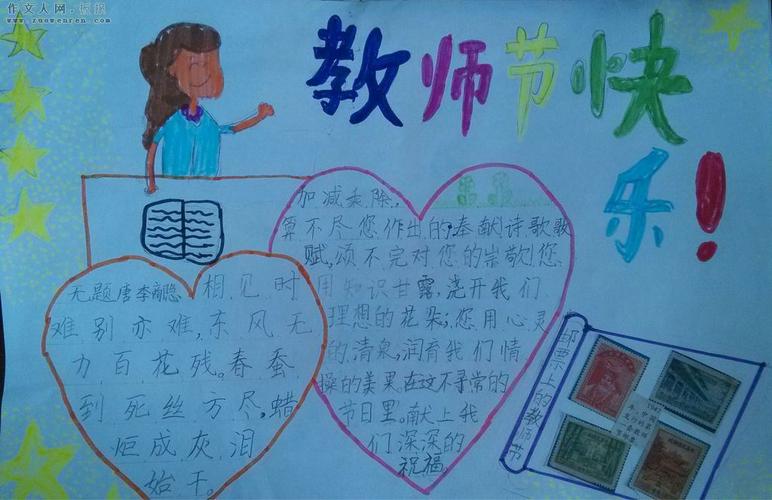 作文人网·板报
www.zuowenren.com
教师节快
乐!
无题唐李商隐相见时
难别亦难,东风无
力百花残。春蚕
到死丝方尽,蜡
炬成灰泪
始干。
加减乘除,
算不尽您作出的奉献!诗歌歌
赋,颂不完对您的崇敬!您
用知识甘露,浇开我们
理想的花朵;您用心灵
的清泉,润育我们情
操的美果在这不寻常的
节日里。献上我
们深深的
祝福
邮票上的教师节